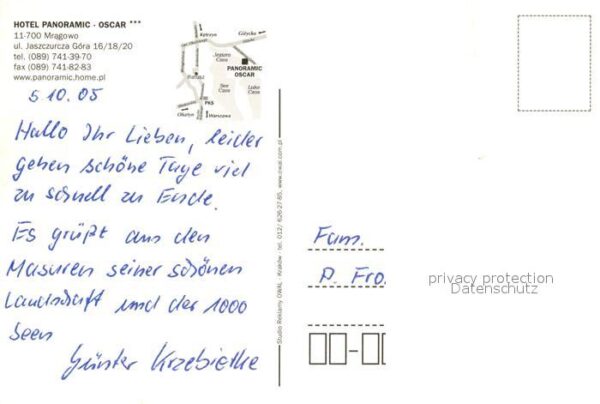 HOTEL PANORAMIC · OSCAR ***
11-700 Mrągowo
ul. Jaszczurcza Góra 16/18/20
tel. (089) 741-39-70
fax (089) 741-82-83
www.panoramic.home.pl
Kętrzyn
Giżycko
PANORAMIC
OSCAR
PKS
Olsztyn
Warszawa
5 10.05
Hallo Ihr Lieben, leider
gehen schöne Tage viel
zu schnell zu Ende.
Es grüßt aus den
Masuren seiner schönen
Landschaft und der 1000
Seen
Günter Krzebietke
Studio Reklamy OWAL - Kraków, tel. (012) 626-27-85, www.owal.com.pl
Fam.
P. Fro.
privacy protection
Datenschutz